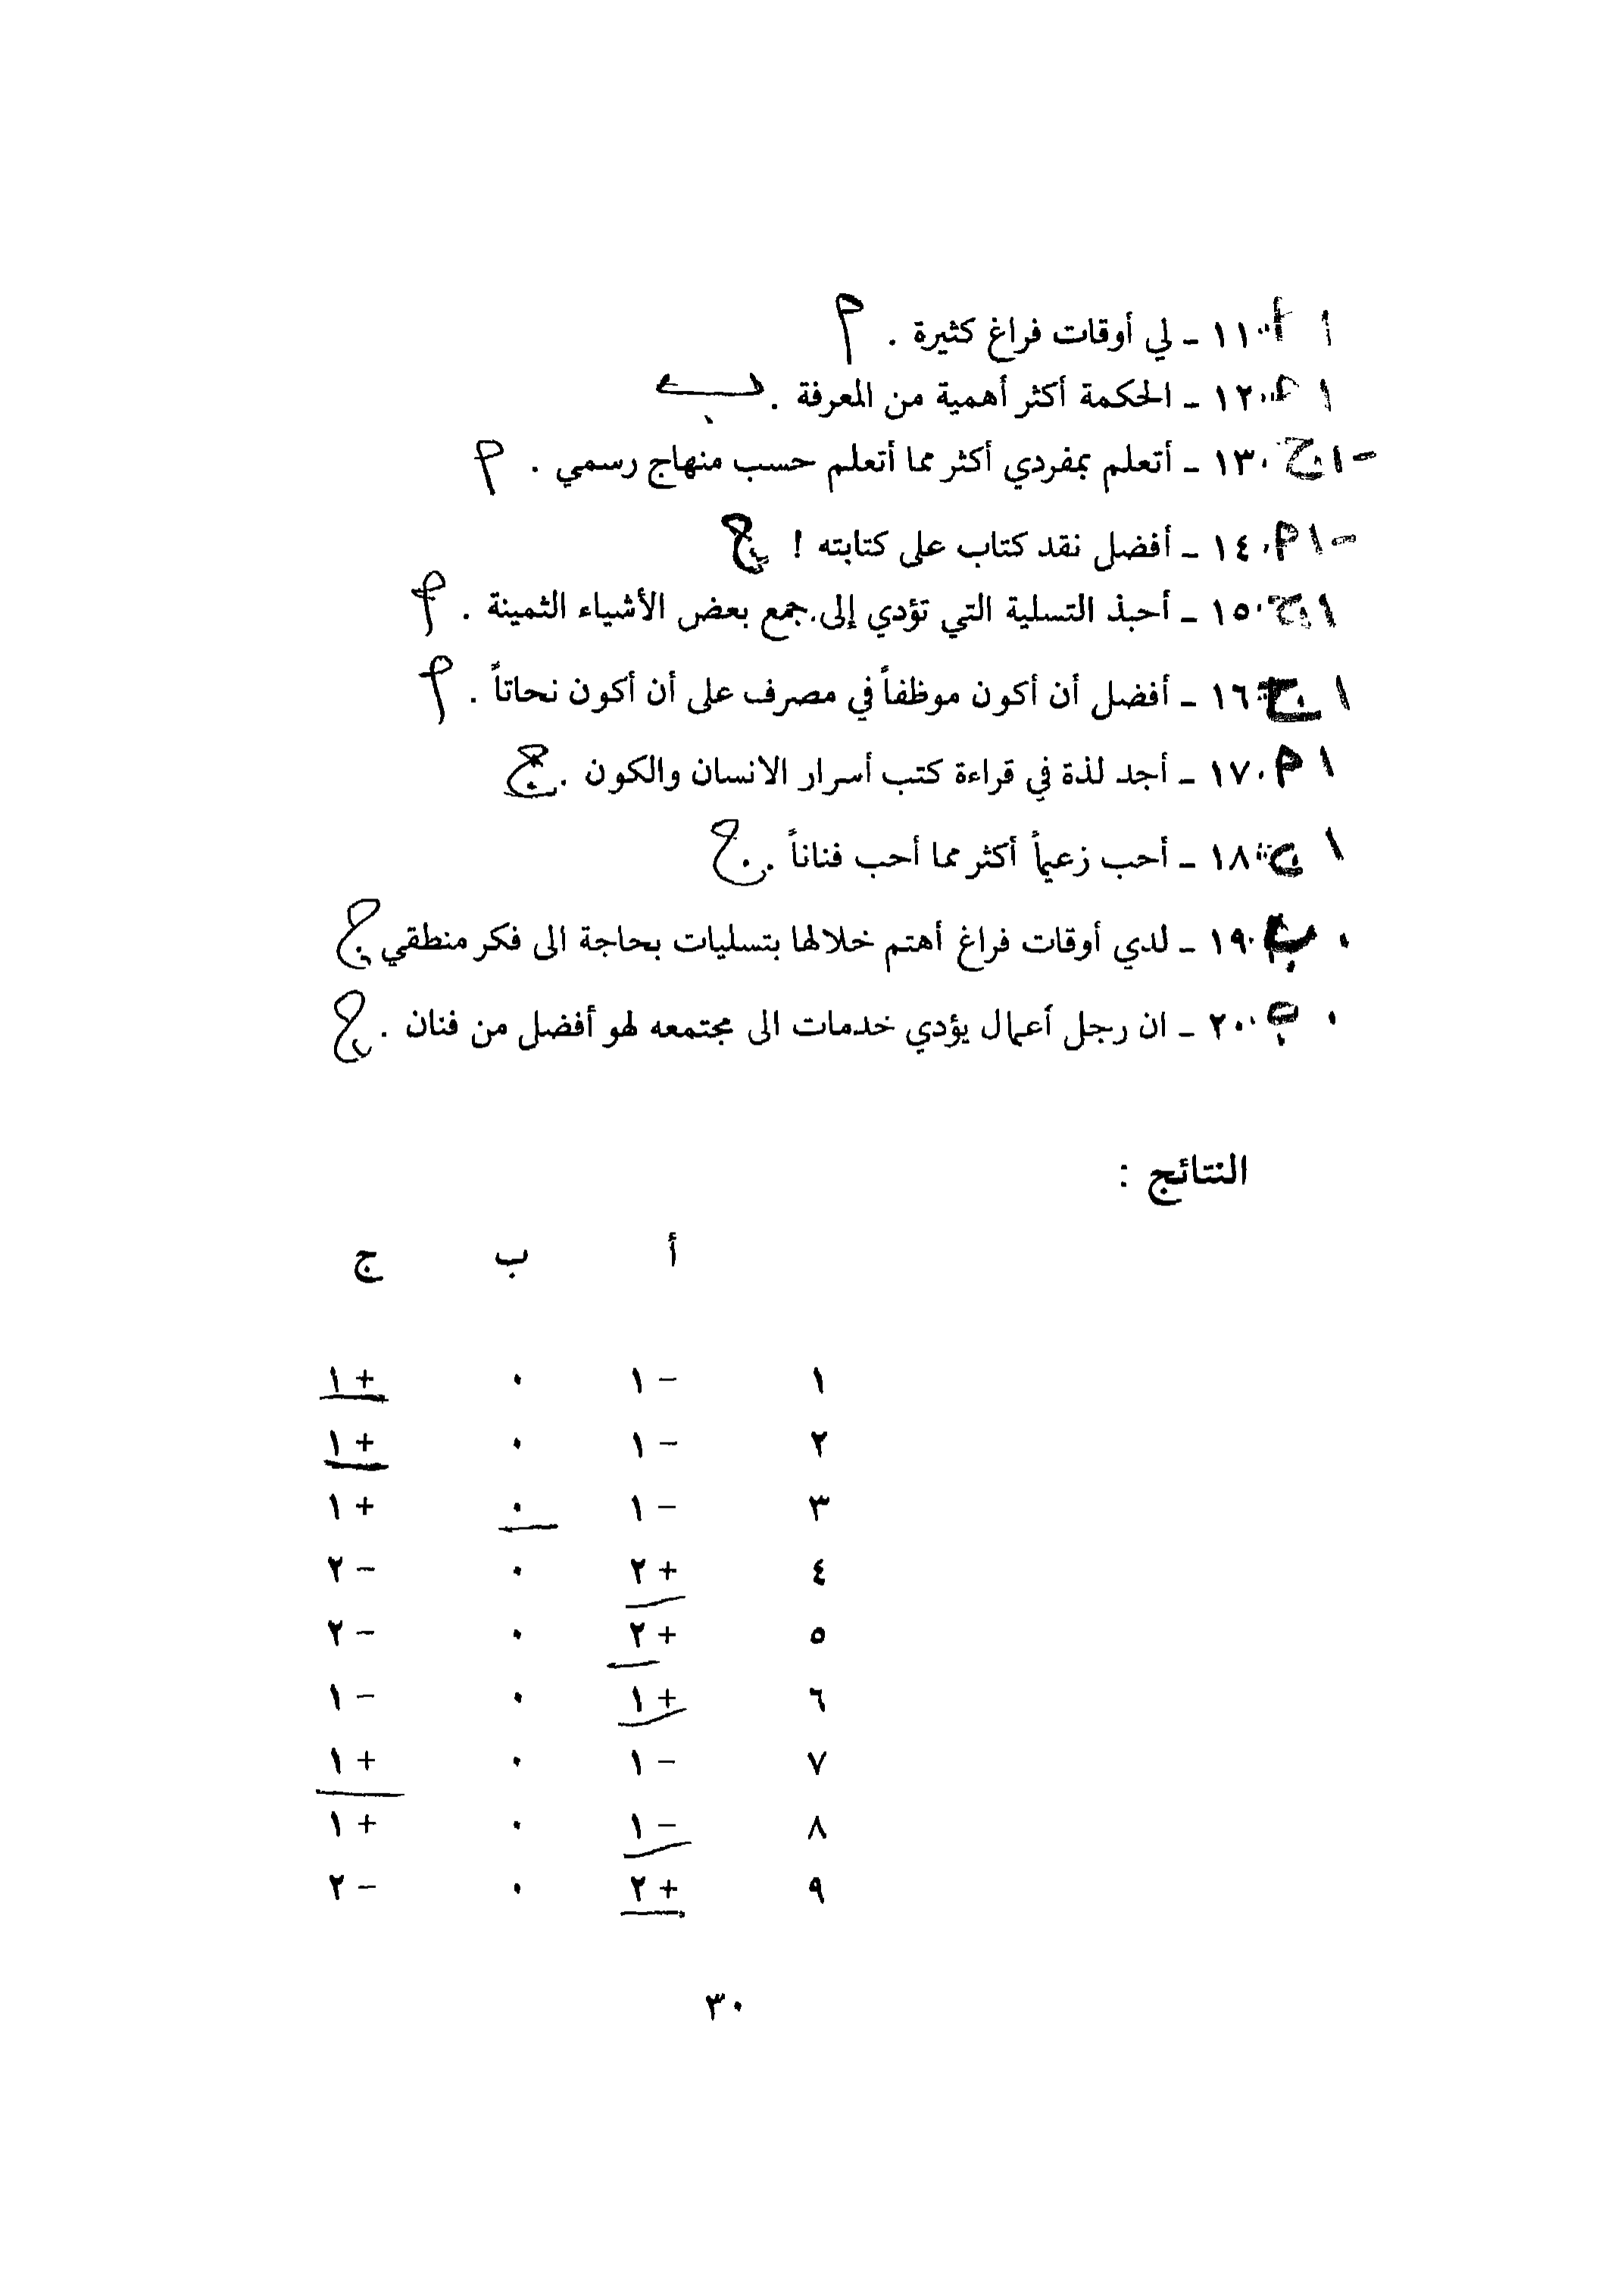 ١ أ ١١ ـ لي أوقات فراغ كثيرة . م
١ ١٢ ـ الحكمة أكثر أهمية من المعرفة . ب
-١ ج ١٣ ـ أتعلم بمفردي أكثر مما أتعلم حسب منهاج رسمي . م
-١ م ١٤ ـ أفضل نقد كتاب على كتابته ! ج
١ ج ١٥ ـ أحبذ التسلية التي تؤدي إلى جمع بعض الأشياء الثمينة . م
١ ج ١٦ ـ أفضل أن أكون موظفاً في مصرف على أن أكون نحاتاً . م
١ م ١٧ ـ أجد لذة في قراءة كتب أسرار الانسان والكون . ج
١ ج ١٨ ـ أحب زعيماً أكثر مما أحب فناناً . ج
٠ ب ١٩ ـ لدي أوقات فراغ أهتم خلالها بتسليات بحاجة الى فكر منطقي ج
٠ ب ٢٠ ـ ان رجل أعمال يؤدي خدمات الى مجتمعه لهو أفضل من فنان . ج
النتائج :
أ ب ج
١ − ١ ٠ + ١
٢ − ١ ٠ + ١
٣ − ١ ٠ + ١
٤ + ٢ ٠ − ٢
٥ + ٢ ٠ − ٢
٦ + ١ ٠ − ١
٧ − ١ ٠ + ١
٨ − ١ ٠ + ١
٩ + ٢ ٠ − ٢
٣٠